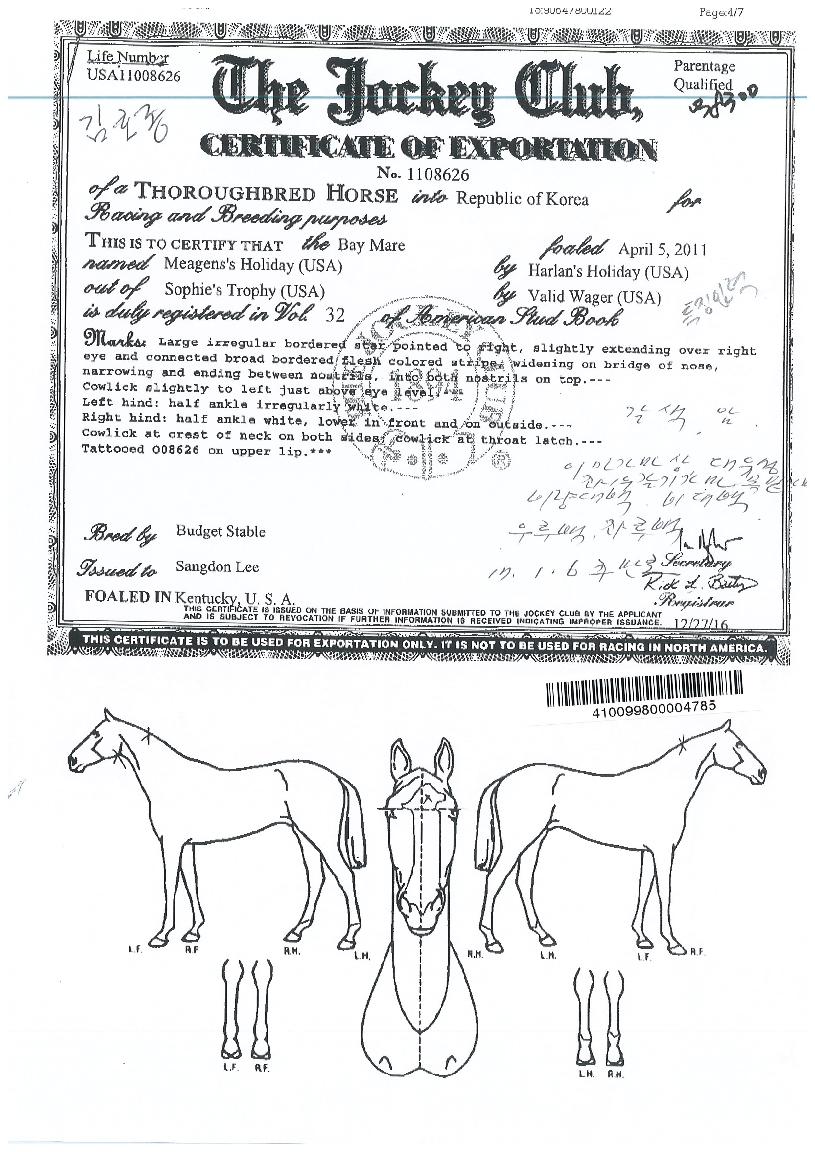 To:90647800122 Page:4/7
Life Number
USA11008626
The Jockey Club,
Parentage
Qualified
CERTIFICATE OF EXPORTATION
No. 1108626
of a THOROUGHBRED HORSE into Republic of Korea for
Racing and Breeding purposes
THIS IS TO CERTIFY THAT the Bay Mare foaled April 5, 2011
named Meagens's Holiday (USA) by Harlan's Holiday (USA)
out of Sophie's Trophy (USA) by Valid Wager (USA)
is duly registered in Vol. 32 of American Stud Book
Marks: Large irregular bordered star pointed to right, slightly extending over right
eye and connected broad bordered flesh colored stripe, widening on bridge of nose,
narrowing and ending between nostrils, into both nostrils on top.---
Cowlick slightly to left just above eye level.---
Left hind: half ankle irregularly white.---
Right hind: half ankle white, lower in front and on outside.---
Cowlick at crest of neck on both sides; cowlick at throat latch.---
Tattooed O08626 on upper lip.***
1894
갈색 암
Bred by Budget Stable
Issued to Sangdon Lee
Secretary
17. 1. 6
Rick L. Bailey
Registrar
FOALED IN Kentucky, U. S. A.
THIS CERTIFICATE IS ISSUED ON THE BASIS OF INFORMATION SUBMITTED TO THE JOCKEY CLUB BY THE APPLICANT
AND IS SUBJECT TO REVOCATION IF FURTHER INFORMATION IS RECEIVED INDICATING IMPROPER ISSUANCE. 12/27/16
THIS CERTIFICATE IS TO BE USED FOR EXPORTATION ONLY. IT IS NOT TO BE USED FOR RACING IN NORTH AMERICA.
410099800004785
L.F. R.F. R.H. L.H. R.H. L.H. L.F. R.F.
L.F. R.F. L.H. R.H.